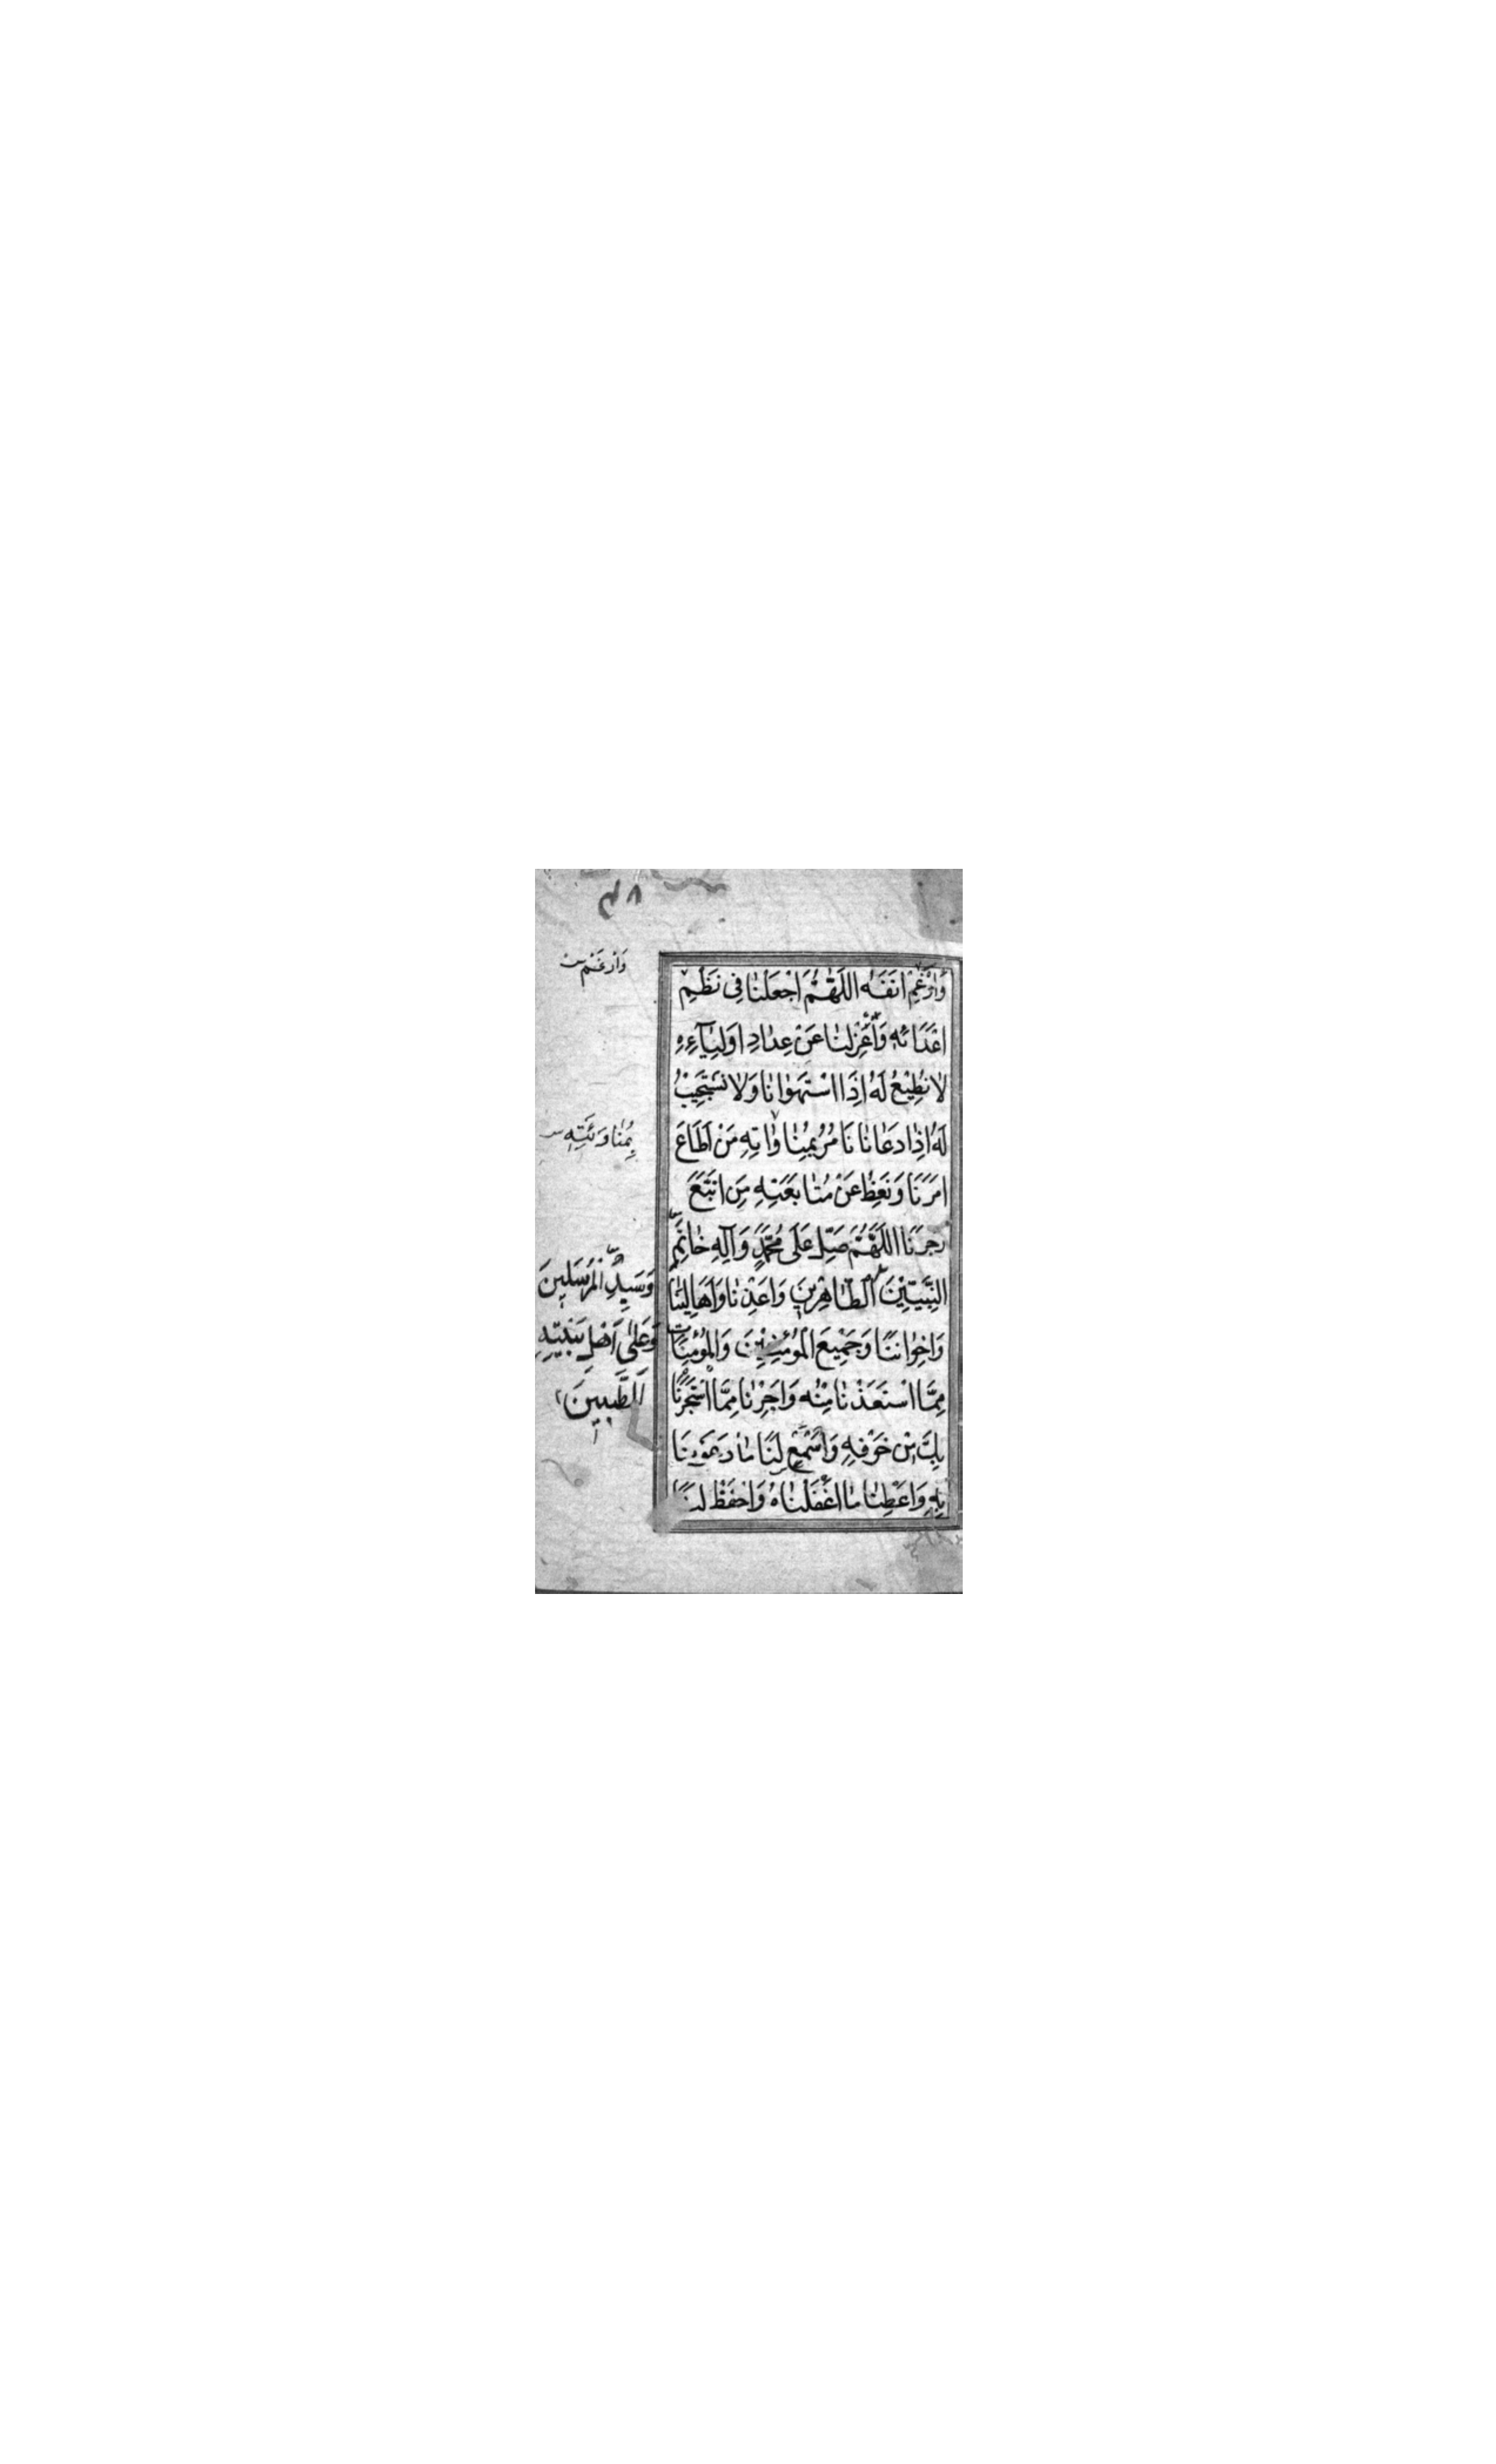 ٤٧
وَاَرْغِمْ اَنفَهُ اللَّهُمَّ اجْعَلْنَا فِي نَظْمِ
اَعْدَائِهِ وَاَعْزِلْنَا عَنْ عِدَادِ اَوْلِيَآءِهِ
لَا نُطِيْعُ لَهُ اِذَا اسْتَهْوَانَا وَلَا نَسْتَجِيْبُ
لَهُ اِذَا دَعَانَا نَامُرُ بِمُنَاوَاتِهِ مَنْ اَطَاعَ
اَمْرَنَا وَنَعِظُ عَنْ مُتَابَعَتِهِ مَنِ اتَّبَعَ
زَجْرَنَا اللَّهُمَّ صَلِّ عَلَى مُحَمَّدٍ وَآلِهِ خَاتَمِ
النَّبِيِّيْنَ الطَّاهِرِيْنَ وَاَعِذْنَا وَاَهَالِيَنَا
وَاِخْوَانَنَا وَجَمِيْعَ الْمُؤْمِنِيْنَ وَالْمُؤْمِنَاتِ
مِمَّا اسْتَعَذْنَا مِنْهُ وَاَجِرْنَا مِمَّا اسْتَجَرْنَا
بِكَ مِنْ خَوْفِهِ وَاسْمَعْ لَنَا مَا دَعَوْنَا
بِهِ وَاَعْطِنَا مَا اَغْفَلْنَاهُ وَاحْفَظْ لَنَا
وَاَرْغَمْ س
بِمُنَاوَئَتِهِ س
وَسَيِّدِ الْمُرْسَلِينَ
وَعَلَى اَهْلِ بَيْتِهِ
الطَّيِّبِينَ